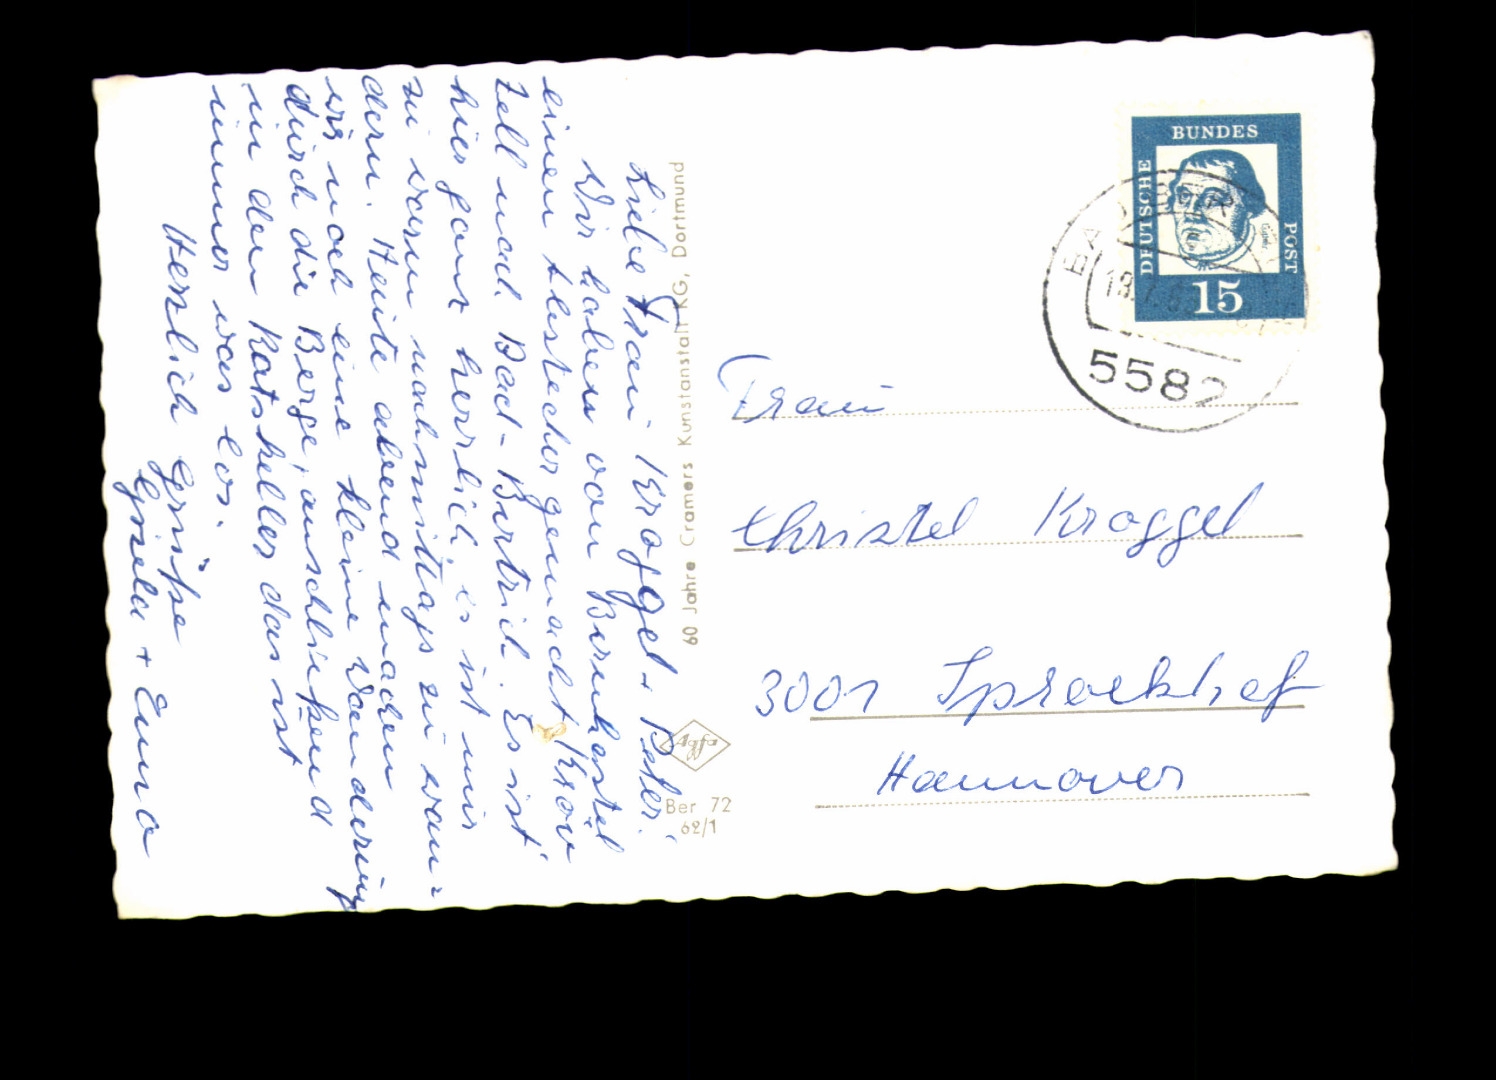 Liebe Frau Kroggel u. Peter!
Wir haben von Brenkastel
einen Abstecher gemacht Krov
Zell nach Bad-Bertrich. Es ist
hier ganz herrlich, es ist nur
zu warm nachmittags zu wan-
dern. Heute abend machen
wir noch eine kleine Wanderung
durch die Berge, anschließend
in den Ratskeller das ist
immer was los.
Herzlich Grüße
Gisela + Enno
60 Jahre Cramers Kunstanstalt KG, Dortmund
Agfa
Ber 72
62/1
BUNDES
DEUTSCHE
POST
15
5582
Frau
Christel Kroggel
3001 Sproekhof
Hannover